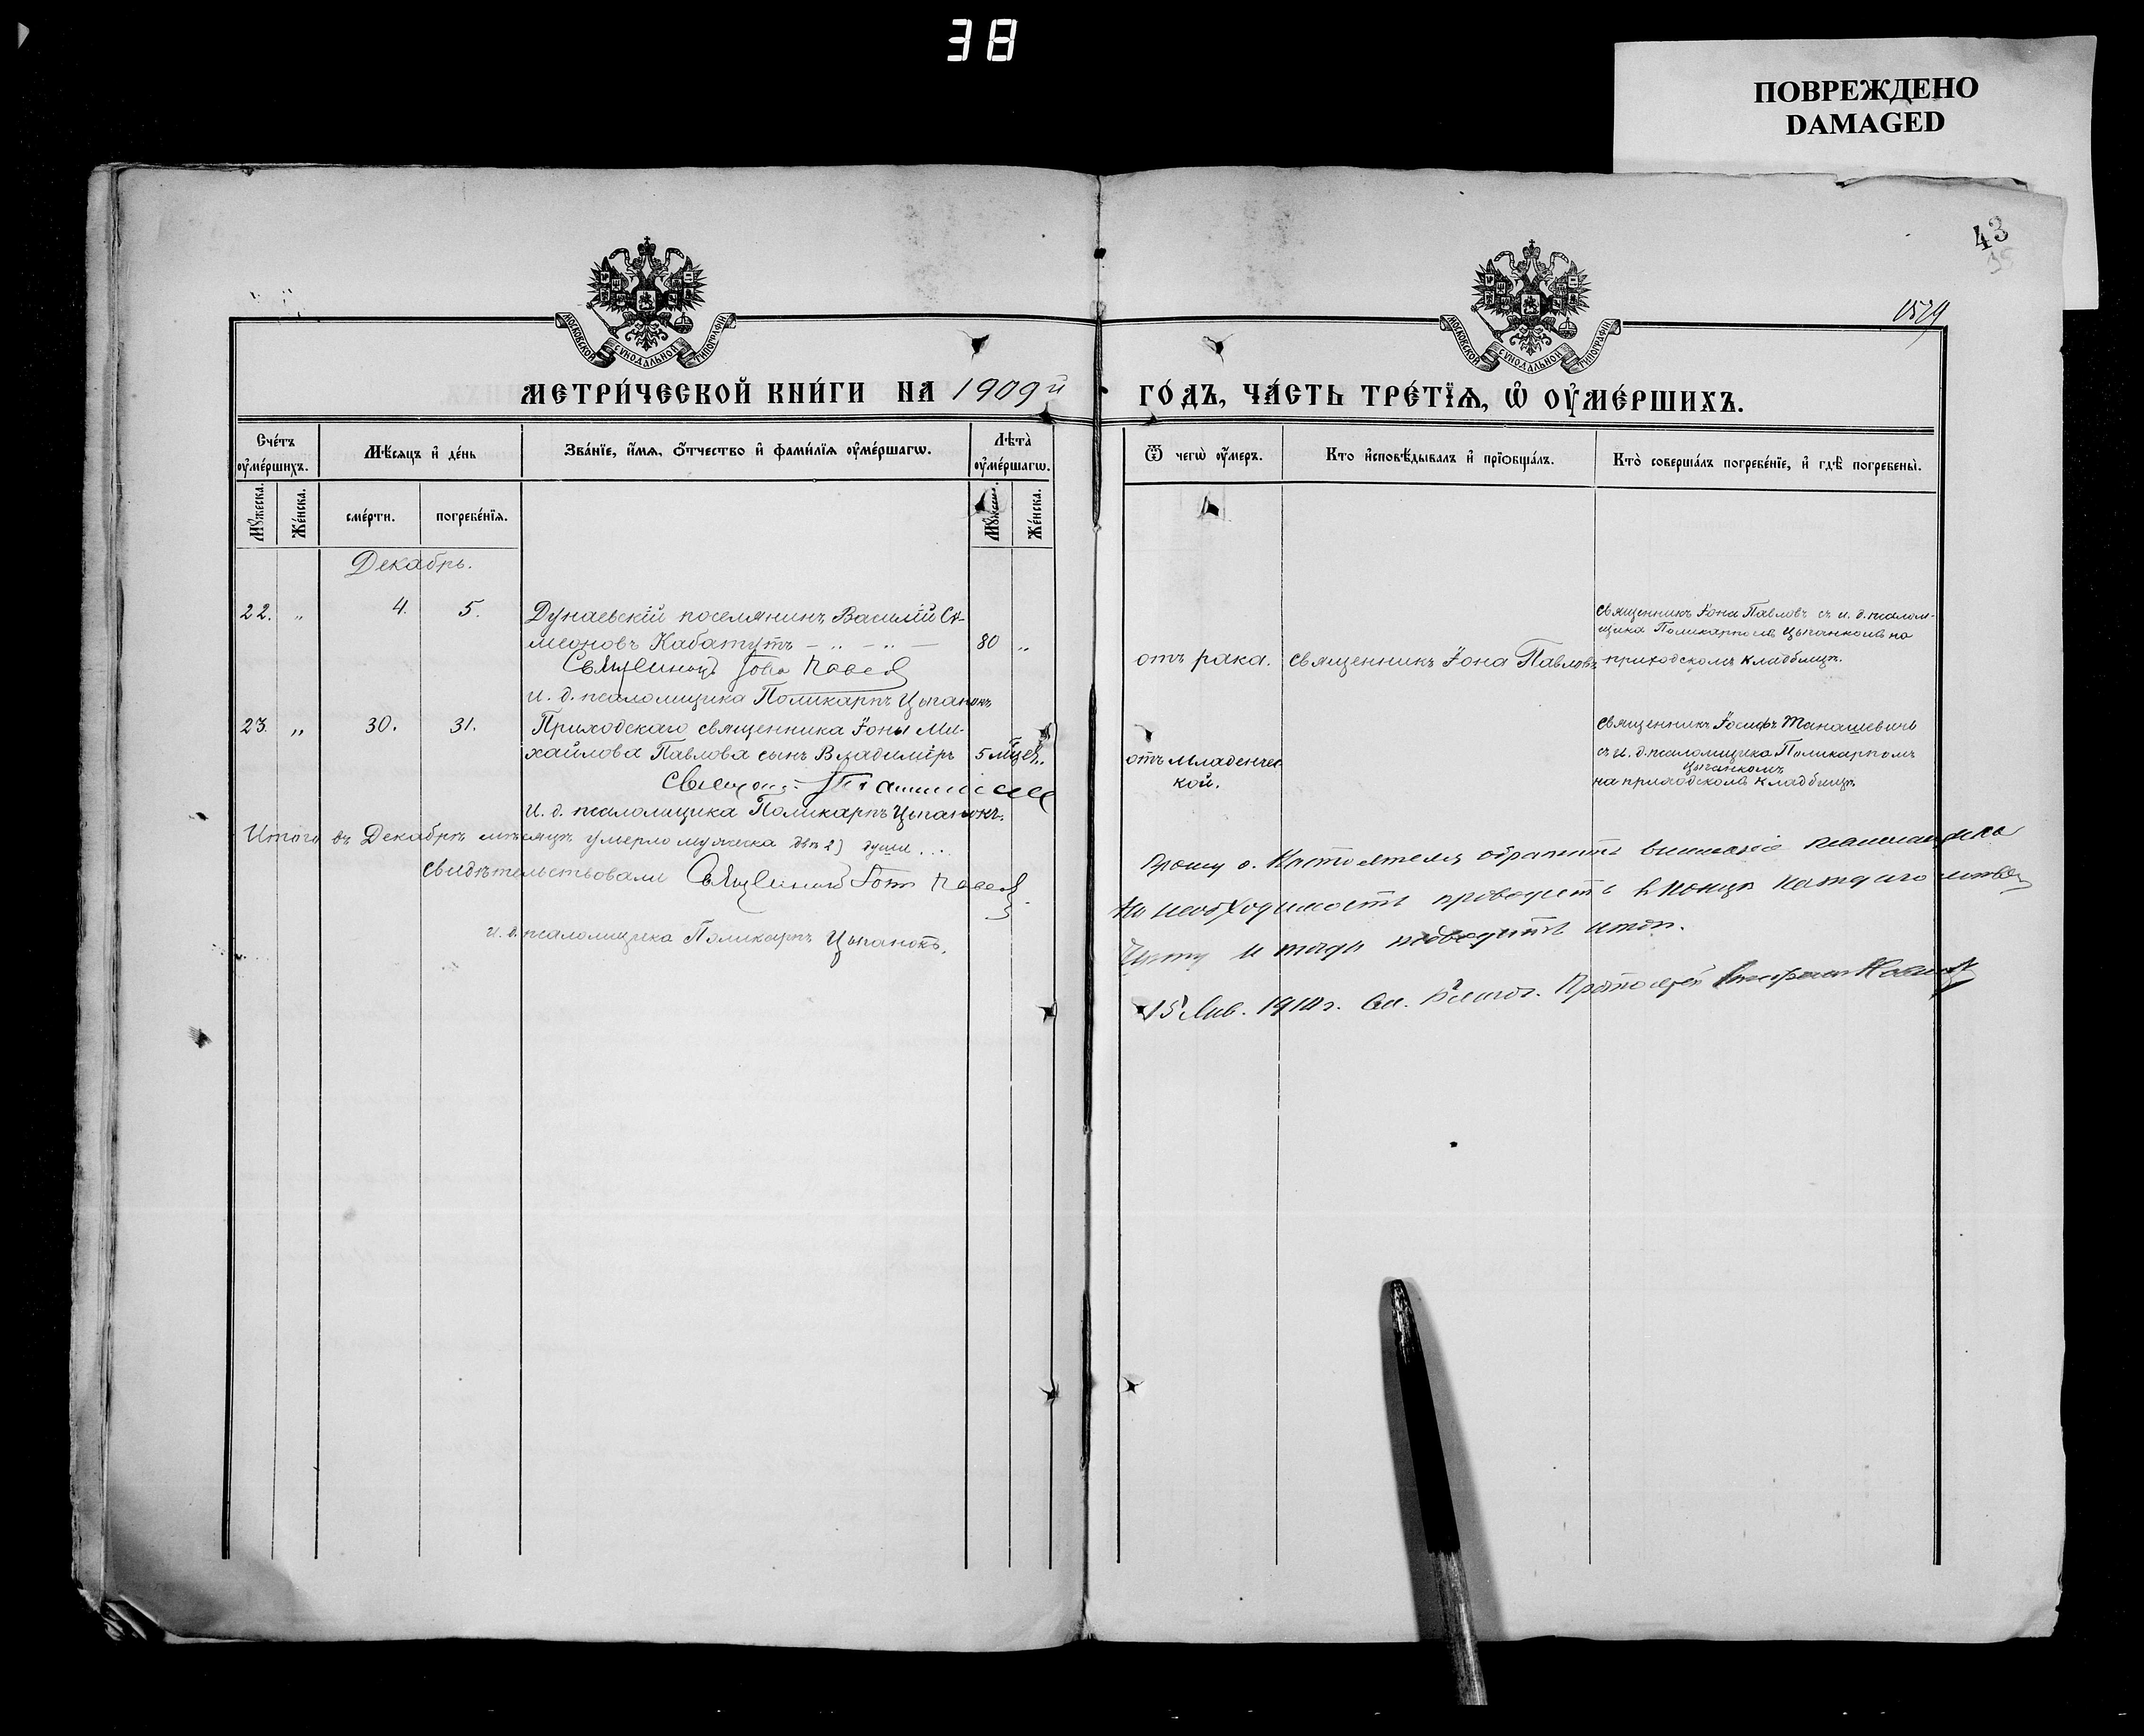 38
ПОВРЕЖДЕНО
DAMAGED
43
1529
МОСКОВСКОЙ СѴНОДАЛЬНОЙ ТИПОГРАФІИ
МОСКОВСКОЙ СѴНОДАЛЬНОЙ ТИПОГРАФІИ
МЕТРИ́ЧЕСКОЙ КНИ́ГИ НА 1909й
ГО́ДЪ, ЧА́СТЬ ТРЕ́ТЇѦ, Ѽ ОУ҆МЕ́РШИХЪ.
Сче́тъ оу҆ме́ршихъ.
Мѣ́сяцъ и҆ де́нь
Зва́нїе, и҆́мѧ, ѻ҆́тчество и҆ фами́лїѧ оу҆ме́ршагѡ.
Лѣта̀ оу҆ме́ршагѡ.
Ѿ чегѡ̀ оу҆́меръ.
Кто̀ и҆сповѣ́дывалъ и҆ прїѡбща́лъ.
Кто̀ соверша́лъ погребе́нїе, и҆ гдѣ̀ погребены̀.
Мꙋ́жеска. Же́нска. сме́рти. погребе́нїѧ. Мꙋ́жеска. Же́нска.
Декабрь.
22. „ 4. 5. Дунаевскій поселянинъ Василій Си-
меоновъ Кабатутъ – „ – „ – 80 „
Священникъ Іона Павловъ
и. д. псаломщика Поликарпъ Цыганокъ
отъ рака. Священникъ Іона Павловъ
Священникъ Іона Павловъ съ и. д. псалом-
щика Поликарпомъ Цыганкомъ на
приходскомъ кладбищѣ.
23. „ 30. 31. Приходскаго священника Іоны Ми-
хайлова Павлова сынъ Владиміръ 5 мѣсяц. „
и. д. псаломщика Поликарпъ Цыганокъ.
отъ младенчес
кой.
Священникъ Іосифъ Танашевичъ
съ и. д. псаломщика Поликарпомъ
Цыганкомъ
на приходскомъ кладбищѣ.
Итого въ Декабрѣ мѣсяцѣ умерло мужеска двѣ 2) души ...
свидѣтельствовали Священникъ Іона Павловъ
и. д. псаломщика Поликарпъ Цыганокъ.
Прошу о. Настоятеля обратить вниманіе псаломщика
на необходимость проводить въ концѣ каждаго мѣсяца
черту и тогда подводить итогъ.
15 Янв. 1910 г. Благоч. Протоіерей